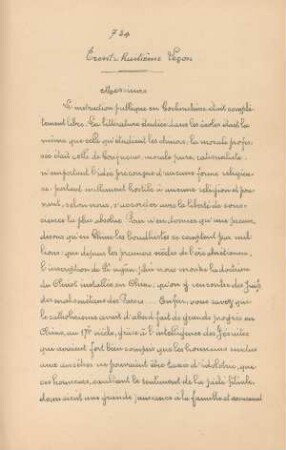 739
Trente-huitième Leçon
Messieurs
L'instruction publique en Cochinchine était complè-
tement libre. La littérature étudiée dans les écoles était la
même que celle qu'étudient les chinois. La morale profes-
sée était celle de Confucius, morale pure, rationaliste,
n'impliquant l'idée préconçue d'aucune forme religieu-
se, partant nullement hostile à aucune religion et pou-
vant, selon nous, s'accorder avec la liberté de cons-
cience la plus absolue. Pour n'en donner qu'une preuve,
disons qu'en Chine les bouddhistes se comptent par mil-
lions, que depuis les premiers siècles de l'ère chrétienne,
l'inscription de Si-ngan-fou nous montre la doctrine
du Christ installée en Chine, qu'on y rencontre des Juifs,
des mahométans, des Parsis... Enfin, vous savez que
le catholicisme avait d'abord fait de grands progrès en
Chine, au 17e siècle, grâce à l'intelligence des Jésuites
qui avaient fort bien compris que les honneurs rendus
aux ancêtres ne pouvaient être taxés d'idolâtrie, que
ces honneurs, exaltant le sentiment de la piété filiale,
donnaient une grande puissance à la famille et assuraient